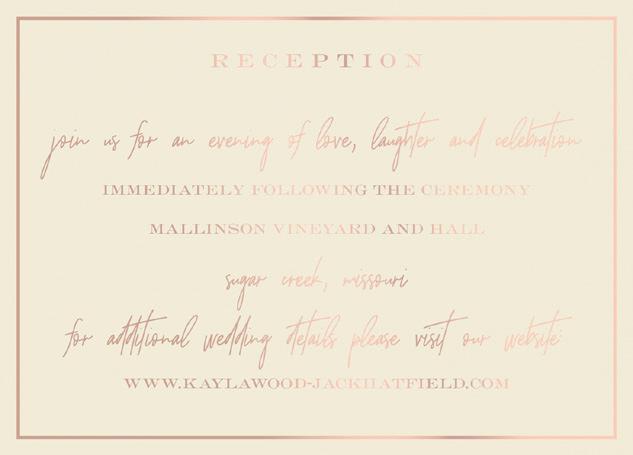 RECEPTION
join us for an evening of love, laughter and celebration
IMMEDIATELY FOLLOWING THE CEREMONY
MALLINSON VINEYARD AND HALL
sugar creek, missouri
for additional wedding details please visit our website:
WWW.KAYLAWOOD-JACKHATFIELD.COM